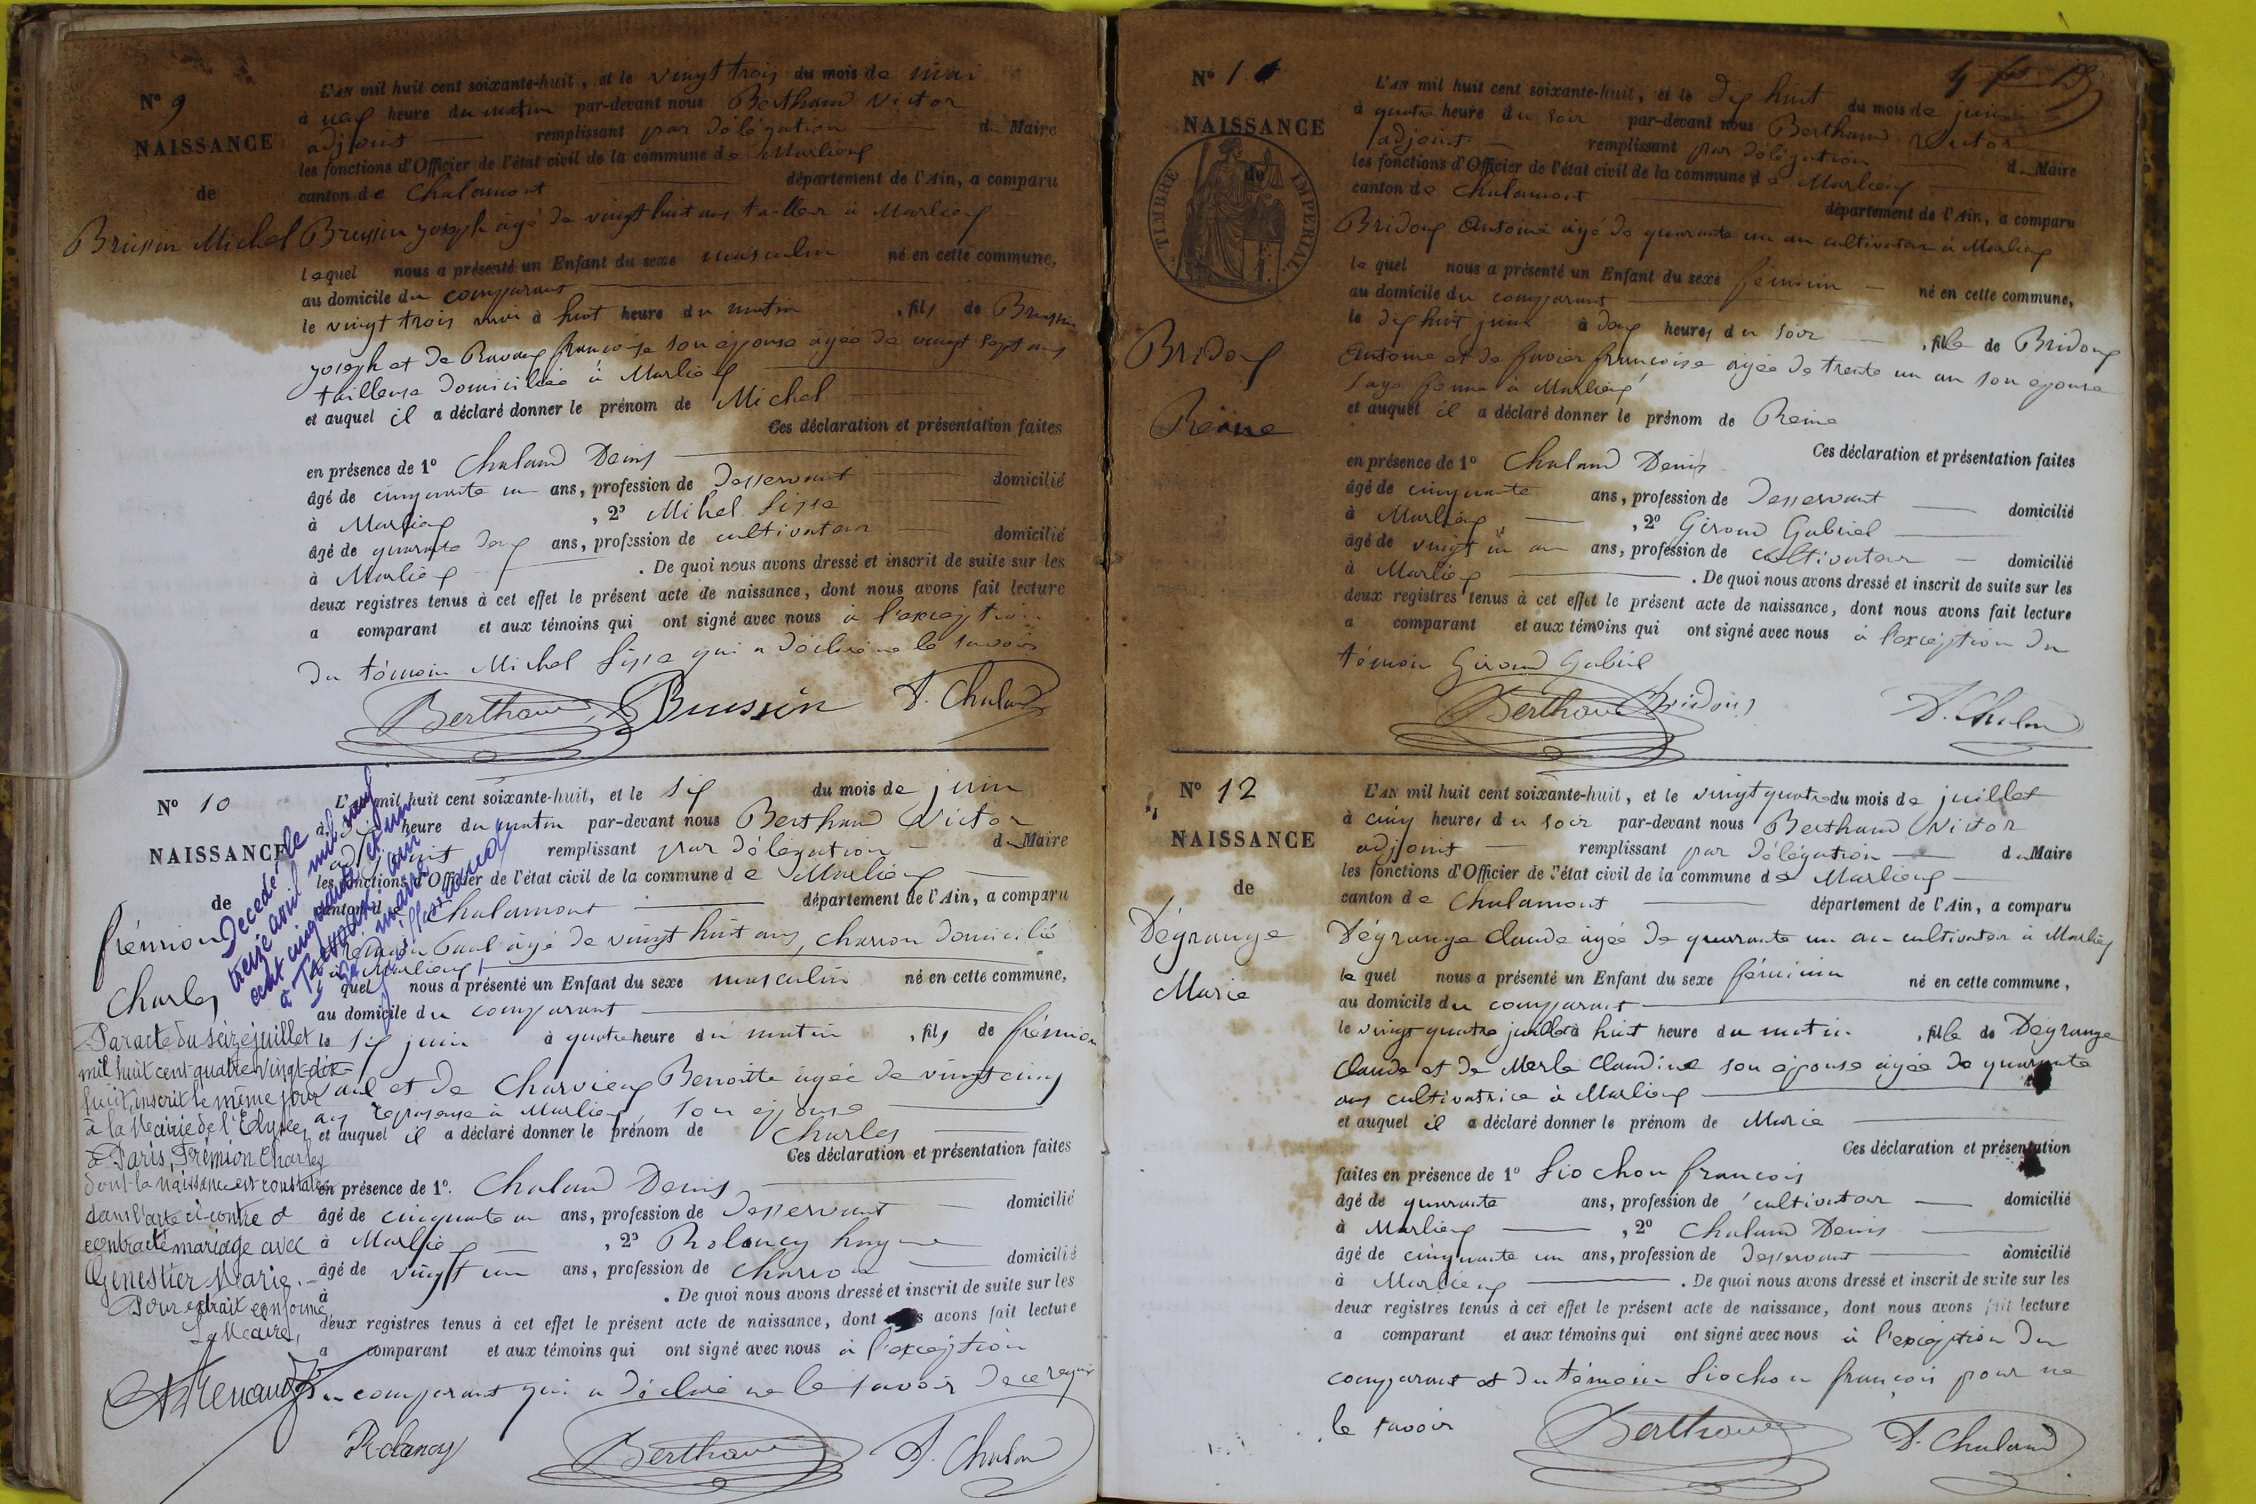 N° 9
NAISSANCE
de
Buisson Michel
L'AN mil huit cent soixante-huit, et le vingt trois du mois de mai
à heure du matin par-devant nous Berthaud Victor
adjoint remplissant par délégation du Maire
les fonctions d'Officier de l'état civil de la commune de Marlieux
canton de Chalamont département de l'Ain, a comparu
Buisson joseph agé de vingt huit ans tailleur à Marlieux
lequel nous a présenté un Enfant du sexe masculin né en cette commune,
au domicile du comparant
le vingt trois mai à huit heure du matin, fils de Buisson
joseph et de françoise son épouse agée de vingt sept ans
tailleuse domiciliée à Marlieux
et auquel il a déclaré donner le prénom de Michel
Ces déclaration et présentation faites
en présence de 1° Chaland Denis
âgé de cinquante un ans, profession de desservant domicilié
à Marlieux, 2° Michel
âgé de quarante deux ans, profession de cultivateur domicilié
à Marlieux. De quoi nous avons dressé et inscrit de suite sur les
deux registres tenus à cet effet le présent acte de naissance, dont nous avons fait lecture
a comparant et aux témoins qui ont signé avec nous à l'exception
du témoin Michel qui a déclaré ne le savoir
Berthaud Buisson D. Chaland
N° 10
NAISSANCE
de
frémion
Charles
Décédé le
treize avril mil neuf
cent cinquante et un
à Trévoux Ain
Le maire
L'AN mil huit cent soixante-huit, et le six du mois de juin
à dix heure du matin par-devant nous Berthaud Victor
adjoint remplissant par délégation du Maire
les fonctions d'Officier de l'état civil de la commune de Marlieux
canton de Chalamont département de l'Ain, a comparu
frémion Paul agé de vingt huit ans, charron domicilié
à Marlieux
le quel nous a présenté un Enfant du sexe masculin né en cette commune,
au domicile du comparant
le six juin à quatre heure du matin, fils de frémion
Paul et de Charvieux Benoitte agée de vingt cinq
ans repasseuse à Marlieux, son épouse
et auquel il a déclaré donner le prénom de Charles
Ces déclaration et présentation faites
en présence de 1°. Chaland Denis
âgé de cinquante un ans, profession de desservant domicilié
à Marlieux, 2° Rolancy
âgé de vingt un ans, profession de charron domicilié
à. De quoi nous avons dressé et inscrit de suite sur les
deux registres tenus à cet effet le présent acte de naissance, dont nous avons fait lecture
a comparant et aux témoins qui ont signé avec nous à l'exception
du comparant qui a déclaré ne le savoir de ce requis
Rolancy Berthaud D. Chaland
Par acte du seize juillet
mil huit cent quatre vingt-dix
huit, inscrit le même jour
à la Mairie de l'Elysée
à Paris, Frémion Charles
dont la naissance est constatée
dans l'acte ci-contre a
contracté mariage avec
Genestier Marie.
Pour extrait conforme,
Le Maire,
Renaud
N° 11
NAISSANCE
de
TIMBRE IMPÉRIAL
Bridoux
Reine
L'AN mil huit cent soixante-huit, et le dix huit du mois de juin
à quatre heure du soir par-devant nous Berthaud Victor
adjoint remplissant par délégation du Maire
les fonctions d'Officier de l'état civil de la commune de Marlieux
canton de Chalamont département de l'Ain, a comparu
Bridoux Antoine agé de quarante un an cultivateur à Marlieux
le quel nous a présenté un Enfant du sexe féminin né en cette commune,
au domicile du comparant
le dix huit juin à deux heures du soir, fille de Bridoux
Antoine et de favier françoise agée de trente un an son epouse
sage femme à Marlieux
et auquel il a déclaré donner le prénom de Reine
Ces déclaration et présentation faites
en présence de 1° Chaland Denis
âgé de cinquante ans, profession de desservant domicilié
à Marlieux, 2° Giroud Gabriel
âgé de vingt un an ans, profession de cultivateur domicilié
à Marlieux. De quoi nous avons dressé et inscrit de suite sur les
deux registres tenus à cet effet le présent acte de naissance, dont nous avons fait lecture
a comparant et aux témoins qui ont signé avec nous à l'exception du
témoin Giroud Gabriel
Berthaud Bridoux D. Chaland
N° 12
NAISSANCE
de
Dégrange
Marie
L'AN mil huit cent soixante-huit, et le vingt quatre du mois de juillet
à cinq heures du soir par-devant nous Berthaud Victor
adjoint remplissant par délégation du Maire
les fonctions d'Officier de l'état civil de la commune de Marlieux
canton de Chalamont département de l'Ain, a comparu
Dégrange Claude agée de quarante un an cultivateur à Marlieux
le quel nous a présenté un Enfant du sexe féminin né en cette commune,
au domicile du comparant
le vingt quatre juillet à huit heure du matin, fille de Dégrange
Claude et de Merle Claudine son épouse agée de quarante
ans cultivatrice à Marlieux
et auquel il a déclaré donner le prénom de Marie
Ces déclaration et présentation
faites en présence de 1° Siochon françois
âgé de quarante ans, profession de cultivateur domicilié
à Marlieux, 2° Chaland Denis
âgé de cinquante un ans, profession de desservant domicilié
à Marlieux. De quoi nous avons dressé et inscrit de suite sur les
deux registres tenus à cet effet le présent acte de naissance, dont nous avons fait lecture
a comparant et aux témoins qui ont signé avec nous à l'exception du
comparant et du témoin Siochon françois pour ne
le savoir
Berthaud D. Chaland